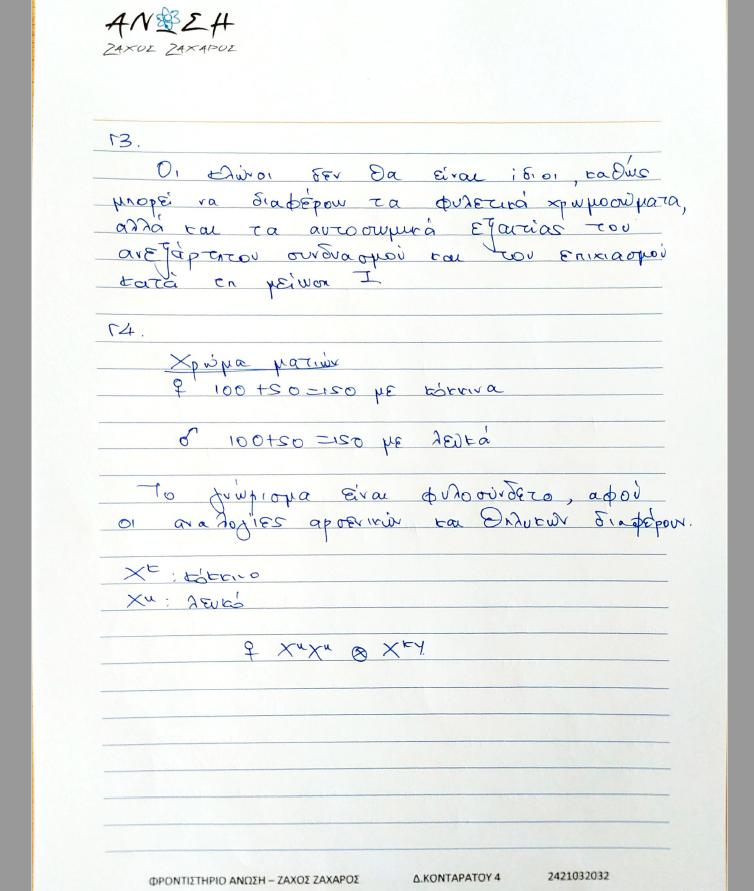 ΑΝΩΣΗ
ΖΑΧΟΣ ΖΑΧΑΡΟΣ
Γ3.
Οι κλώνοι δεν θα είναι ίδιοι, καθώς
μπορεί να διαφέρουν τα φυλετικά χρωμοσώματα,
αλλά και τα αυτοσωμικά εξαιτίας του
ανεξάρτητου συνδυασμού και του επιχιασμού
κατά τη μείωση Ι
Γ4.
Χρώμα ματιών
♀ 100+50=150 με κόκκινα
♂ 100+50=150 με λευκά
Το γνώρισμα είναι φυλοσύνδετο, αφού
οι αναλογίες αρσενικών και θηλυκών διαφέρουν.
Χᴷ : κόκκινο
Χᵏ : λευκό
♀ ΧᵏΧᵏ ⊗ ΧᴷΥ
ΦΡΟΝΤΙΣΤΗΡΙΟ ΑΝΩΣΗ – ΖΑΧΟΣ ΖΑΧΑΡΟΣ Δ.ΚΟΝΤΑΡΑΤΟΥ 4 2421032032